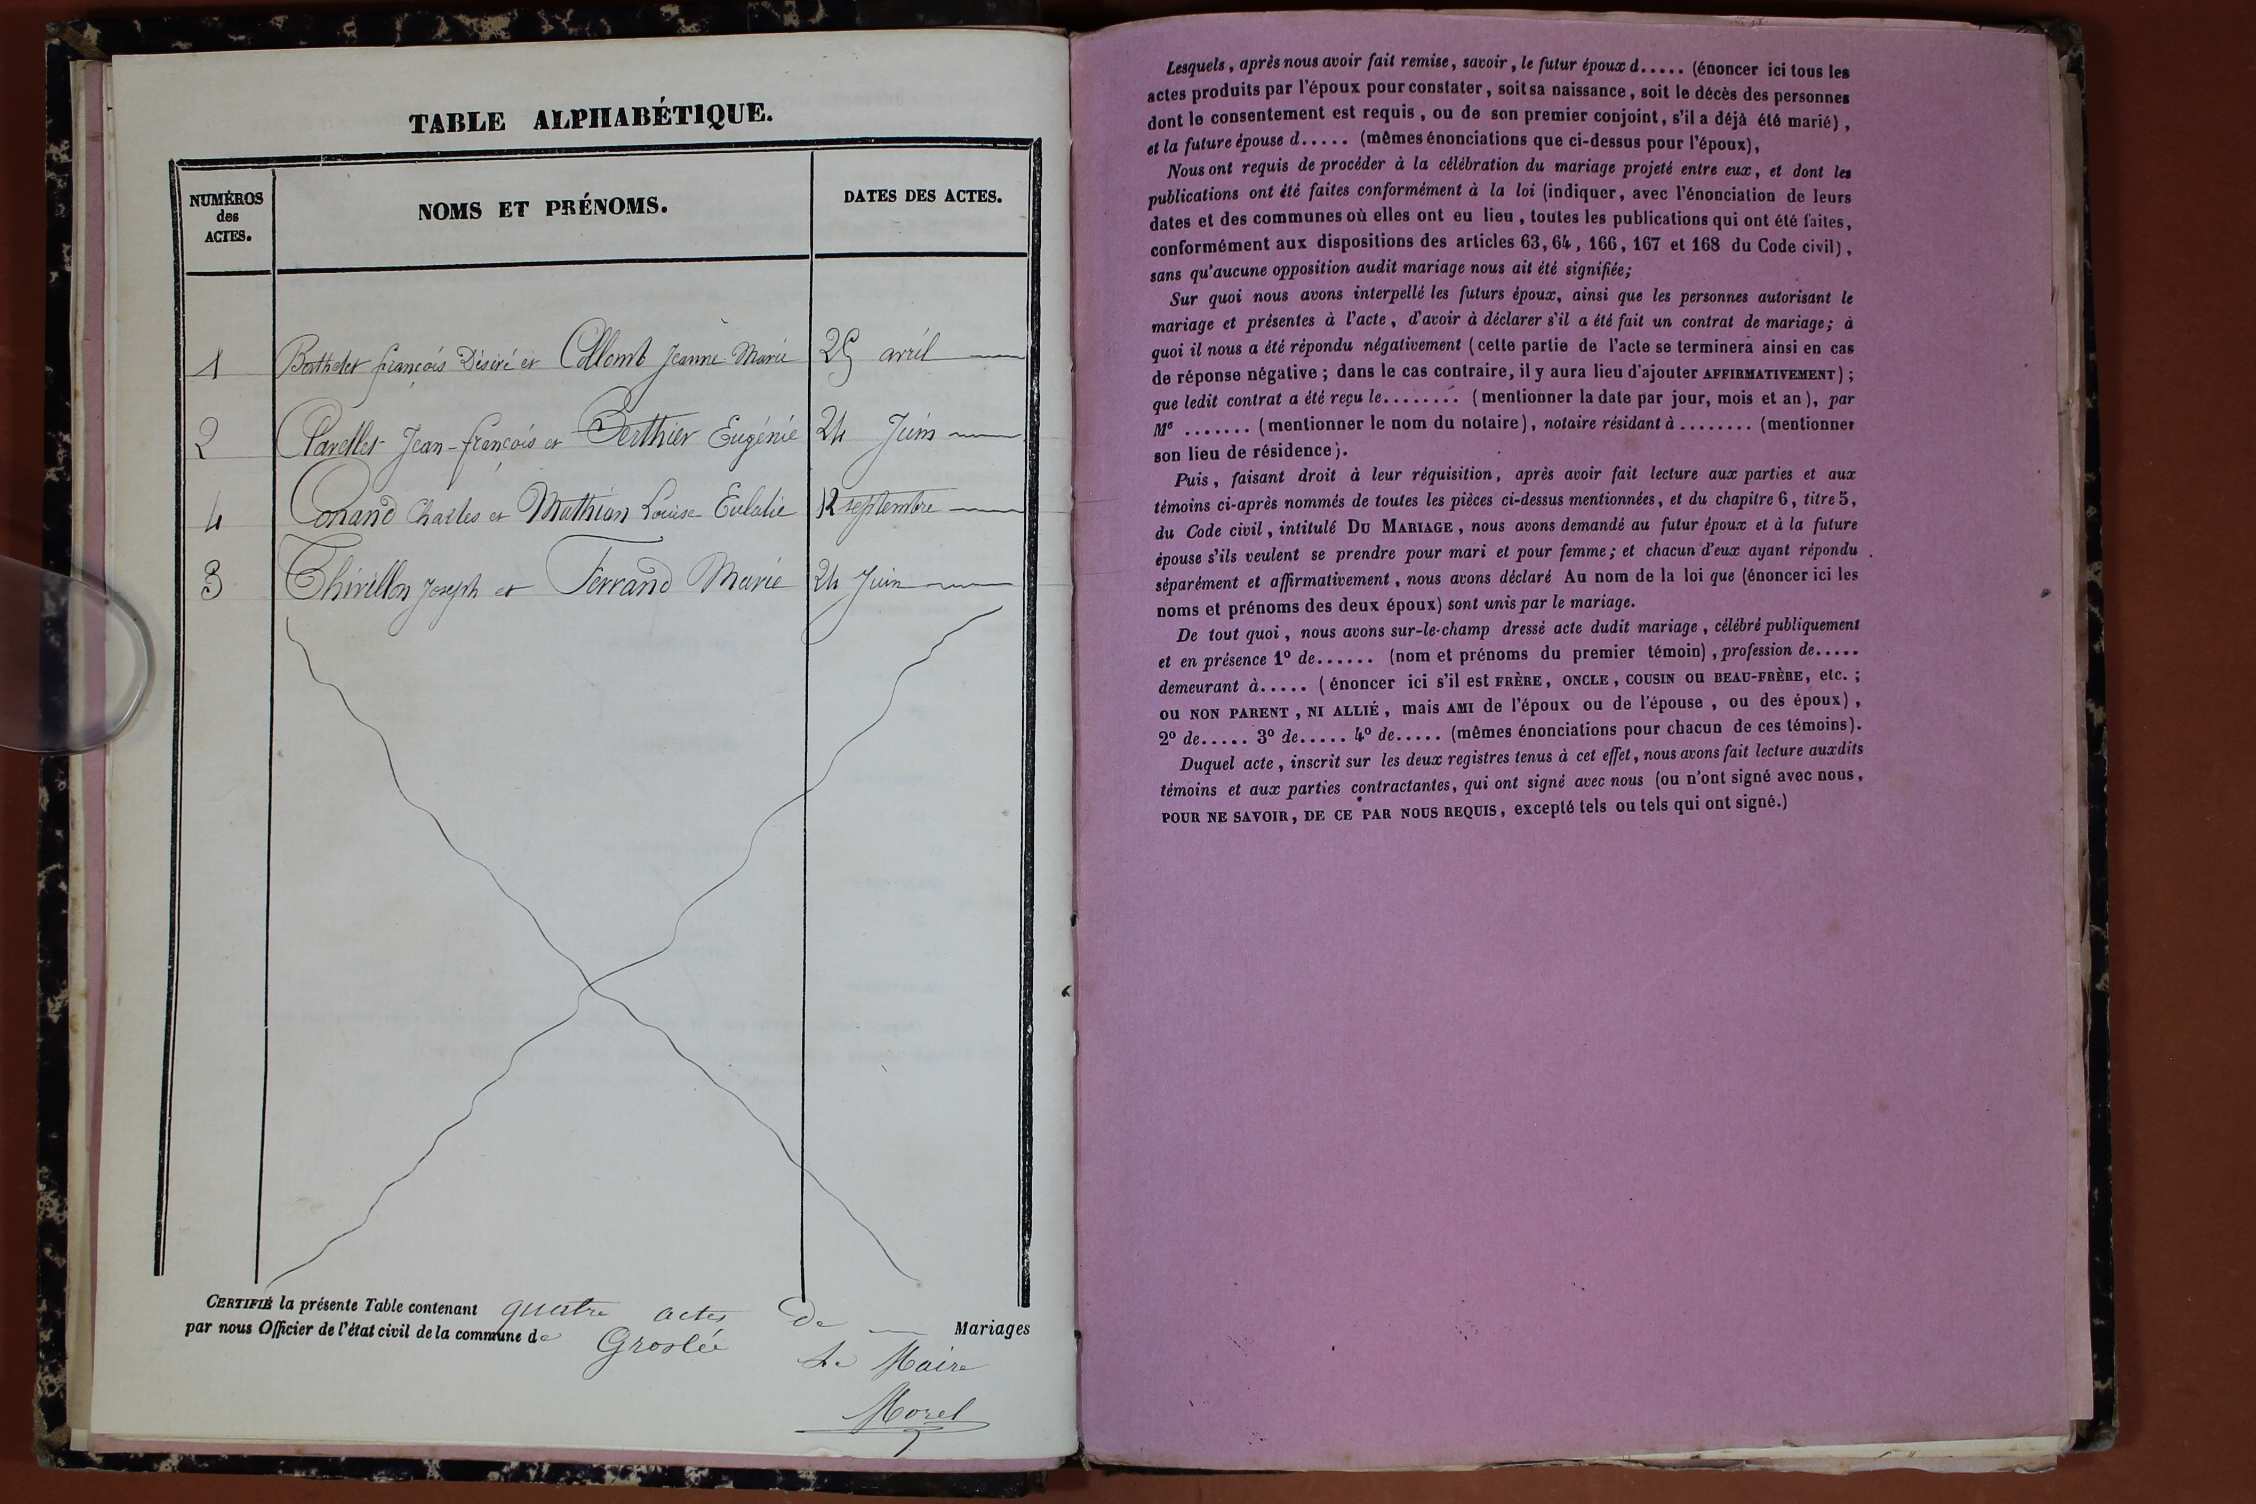 TABLE ALPHABÉTIQUE.
NUMÉROS
des
ACTES.
NOMS ET PRÉNOMS.
DATES DES ACTES.
1 Berthelet françois Désiré et Collomb Jeanne Marie 25 avril
2 Clavellet Jean-françois et Berthier Eugénie 24 Juin
4 Conand Charles et Mathian Louise Eulalie 12 septembre
3 Thivillon Joseph et Ferrand Marie 24 Juin
CERTIFIÉ la présente Table contenant quatre actes de Mariages
par nous Officier de l'état civil de la commune de Groslée
Le Maire
Morel
Lesquels, après nous avoir fait remise, savoir, le futur époux d..... (énoncer ici tous les
actes produits par l'époux pour constater, soit sa naissance, soit le décès des personnes
dont le consentement est requis, ou de son premier conjoint, s'il a déjà été marié),
et la future épouse d..... (mêmes énonciations que ci-dessus pour l'époux),
Nous ont requis de procéder à la célébration du mariage projeté entre eux, et dont les
publications ont été faites conformément à la loi (indiquer, avec l'énonciation de leurs
dates et des communes où elles ont eu lieu, toutes les publications qui ont été faites,
conformément aux dispositions des articles 63, 64, 166, 167 et 168 du Code civil),
sans qu'aucune opposition audit mariage nous ait été signifiée;
Sur quoi nous avons interpellé les futurs époux, ainsi que les personnes autorisant le
mariage et présentes à l'acte, d'avoir à déclarer s'il a été fait un contrat de mariage; à
quoi il nous a été répondu négativement (cette partie de l'acte se terminera ainsi en cas
de réponse négative; dans le cas contraire, il y aura lieu d'ajouter AFFIRMATIVEMENT);
que ledit contrat a été reçu le........ (mentionner la date par jour, mois et an), par
Me ....... (mentionner le nom du notaire), notaire résidant à ........ (mentionner
son lieu de résidence).
Puis, faisant droit à leur réquisition, après avoir fait lecture aux parties et aux
témoins ci-après nommés de toutes les pièces ci-dessus mentionnées, et du chapitre 6, titre 5,
du Code civil, intitulé DU MARIAGE, nous avons demandé au futur époux et à la future
épouse s'ils veulent se prendre pour mari et pour femme; et chacun d'eux ayant répondu
séparément et affirmativement, nous avons déclaré Au nom de la loi que (énoncer ici les
noms et prénoms des deux époux) sont unis par le mariage.
De tout quoi, nous avons sur-le-champ dressé acte dudit mariage, célébré publiquement
et en présence 1º de...... (nom et prénoms du premier témoin), profession de.....
demeurant à..... (énoncer ici s'il est FRÈRE, ONCLE, COUSIN OU BEAU-FRÈRE, etc.;
ou NON PARENT, NI ALLIÉ, mais AMI de l'époux ou de l'épouse, ou des époux),
2º de..... 3º de..... 4º de..... (mêmes énonciations pour chacun de ces témoins).
Duquel acte, inscrit sur les deux registres tenus à cet effet, nous avons fait lecture auxdits
témoins et aux parties contractantes, qui ont signé avec nous (ou n'ont signé avec nous,
POUR NE SAVOIR, DE CE PAR NOUS REQUIS, excepté tels ou tels qui ont signé.)